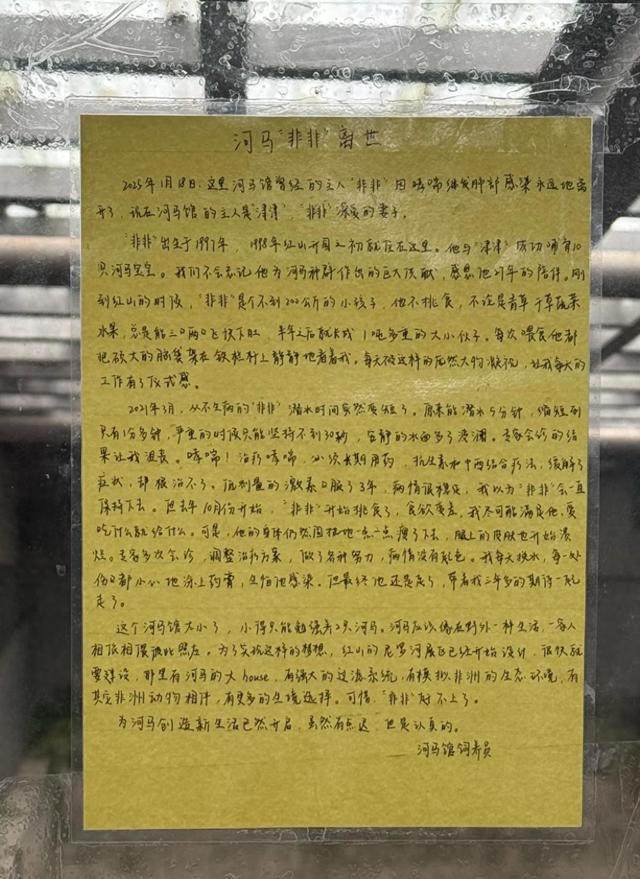 河马"非非"离世
2025年1月18日，这里河马馆曾经的主人"非非"因哮喘继发肺部感染永远地离
开了，现在河马馆的主人是"津津"，"非非"深爱的妻子。
"非非"出生于1997年，1998年红山开园之初就住在这里。他与"津津"成功哺育10
只河马宝宝。我们不会忘记他为河马种群作出的巨大贡献，感恩他27年的陪伴。刚
到红山的时候，"非非"是个不到200公斤的小孩子，他不挑食，不论是青草干草蔬菜
水果，总是能三口两口飞快下肚，半年之后就长成1吨多重的大小伙子。每次喂食他都
把硕大的脑袋靠在铁栏杆上静静地看着我。每天被这样的庞然大物凝视，让我每天的
工作有了仪式感。
2021年3月，从不生病的"非非"潜水时间突然变短了。原来能潜水5分钟，缩短到
只有1分多钟，严重的时候只能坚持不到30秒，安静的水面多了涟漪。专家会诊的结
果让我沮丧。哮喘！治疗哮喘，必须长期用药，抗生素和中西结合疗法，缓解了
症状，却根治不了。低剂量的激素口服了3年，病情很稳定，我以为"非非"会一直
保持下去。但去年10月份开始，"非非"开始挑食了，食欲变差，我尽可能满足他，要
吃什么就给什么。可是，他的身体仍然固执地一点一点瘦了下去，腿上的皮肤也开始溃
烂。专家多次会诊，调整治疗方案，做了各种努力，病情没有起色。我每天换水，每一处
伤口都小心地涂上药膏，生怕他感染。但最终他还是走了，带着我三年多的期待一起
走了。
这个河马馆太小了，小得只能勉强养2只河马。河马应该像在野外一种生活，一家人
相依相偎彼此照应。为了实现这样的梦想，红山的尼罗河展区已经开始设计，很快就
要建设，那里有河马的大house，有强大的过滤系统，有模拟非洲的生态环境，有
其它非洲动物相伴，有更多的生境选择。可惜，"非非"赶不上了。
为河马创造新生活已然开启，虽然有点迟，但是认真的。
——河马馆饲养员